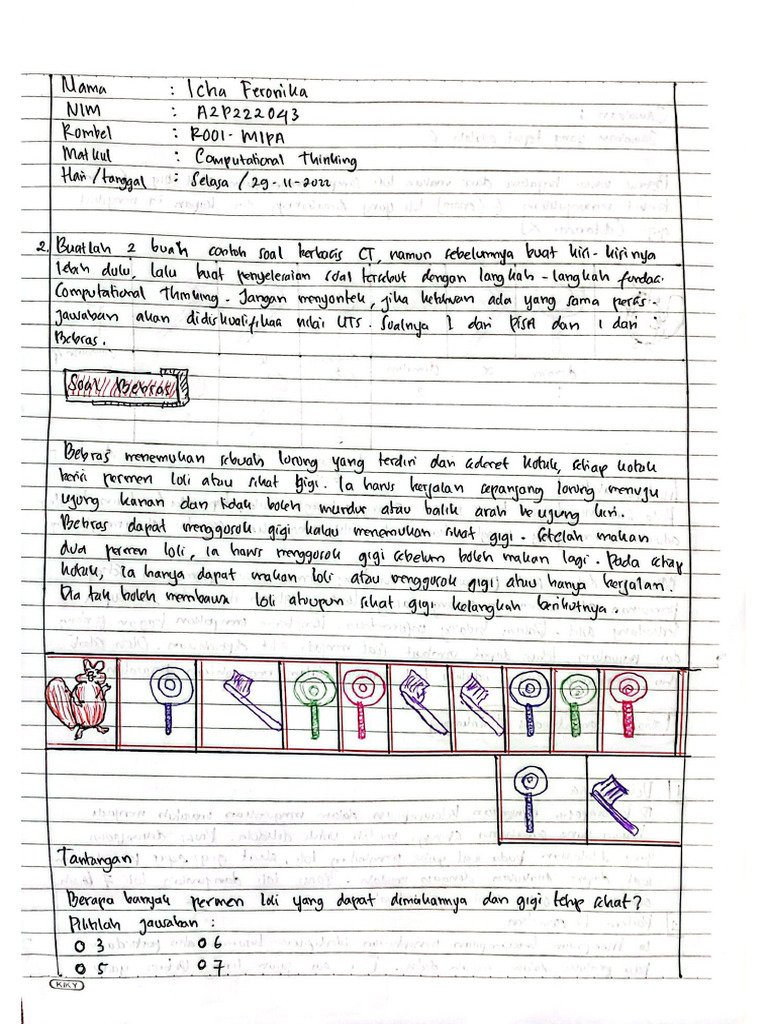 Nama : Icha Feronika
NIM : A2P222043
Rombel : R001 - MIPA
Matkul : Computational Thinking
Hari/tanggal : Selasa / 29-11-2022
2. Buatlah 2 buah contoh soal berbasis CT, namun sebelumnya buat kisi-kisinya
lebih dulu, lalu buat penyelesaian soal tersebut dengan langkah-langkah
Computational Thinking. Jangan menyontek, jika ketahuan ada yang sama persis
jawaban akan didiskualifikasi nilai UTS. Soalnya 1 dari PISA dan 1 dari
Bebras.
Soal Bebras
Bebras menemukan sebuah lorong yang terdiri dari sederet kotak, setiap kotak
berisi permen loli atau sikat gigi. Ia harus berjalan sepanjang lorong menuju
ujung kanan dan tidak boleh mundur atau balik arah ke ujung kiri.
Bebras dapat menggosok gigi kalau menemukan sikat gigi. Setelah makan
dua permen loli, ia harus menggosok gigi sebelum boleh makan lagi. Pada setiap
kotak, ia hanya dapat makan loli atau menggosok gigi atau hanya berjalan.
Dia tak boleh membawa loli ataupun sikat gigi kelangkah berikutnya.
Tantangan
Berapa banyak permen loli yang dapat dimakannya dan gigi tetap sehat?
Pilihlah jawaban :
O 3 O 6
O 5 O 7
KIKY